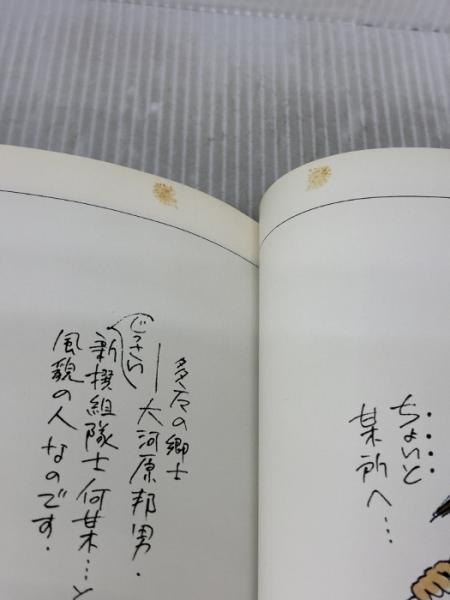 ちょいと
某所へ…
多摩の郷士
―大河原邦男.
(じっさい
新撰組隊士何某…と
風貌の人なのです.